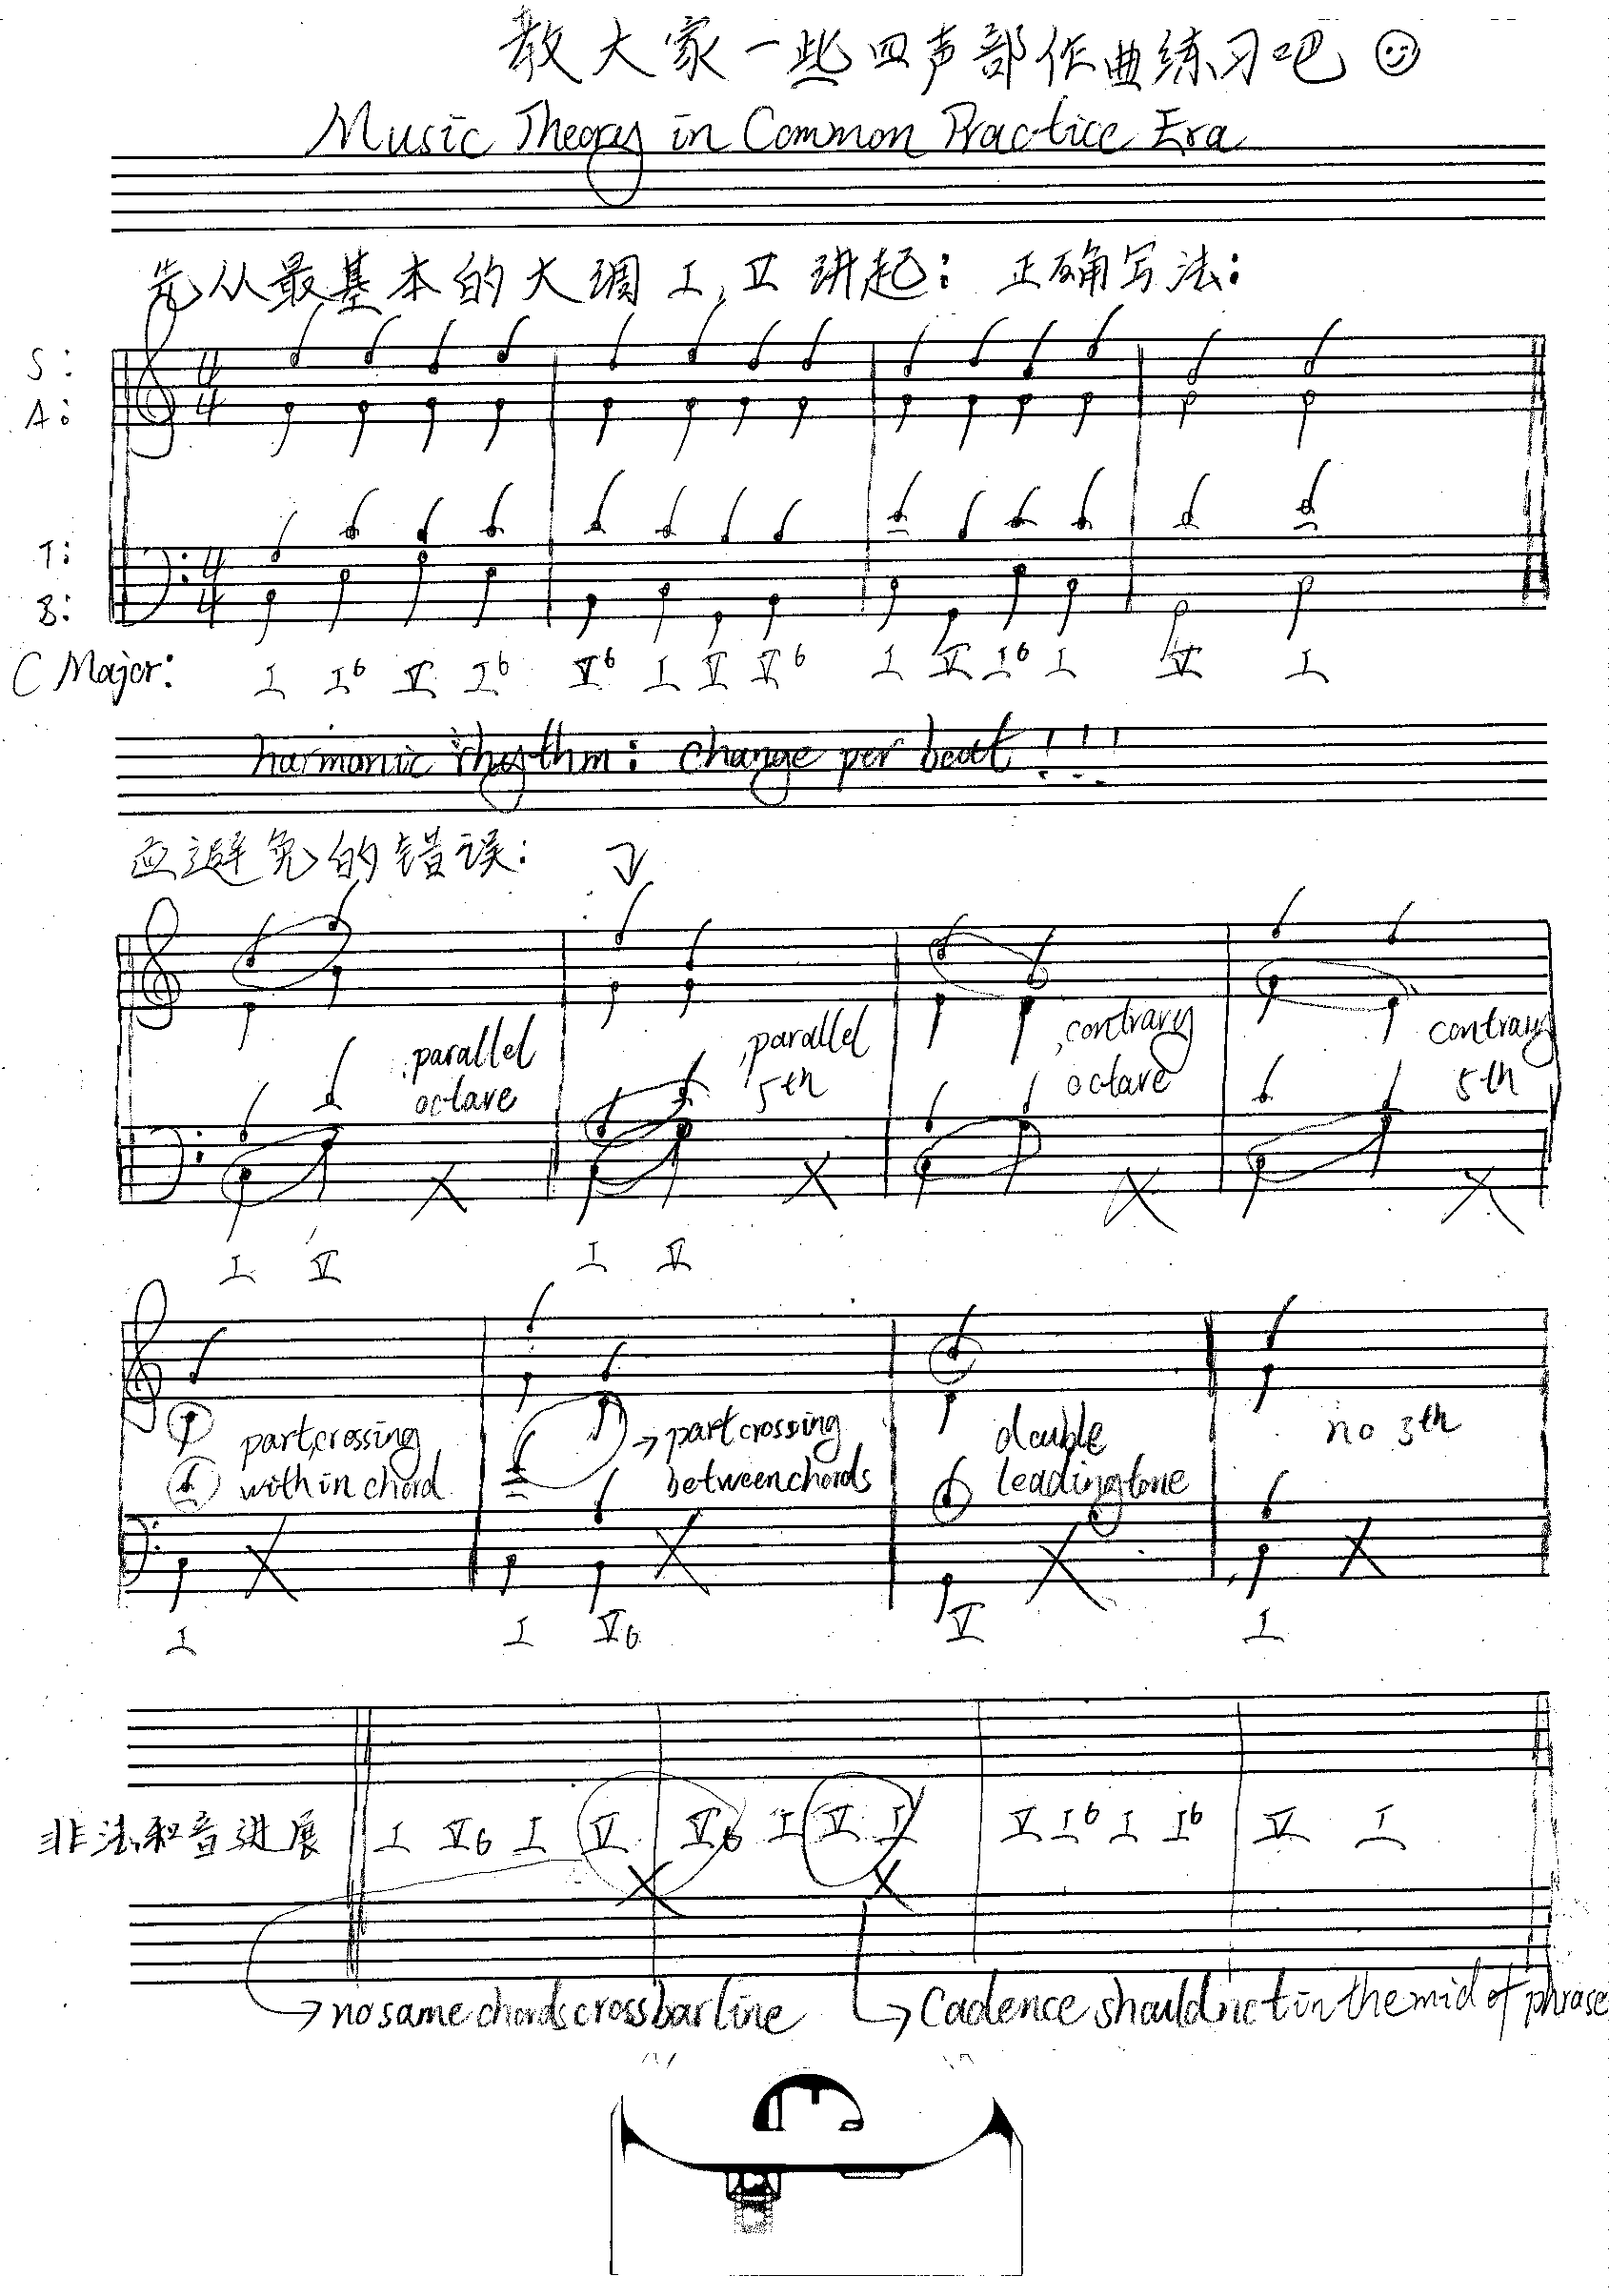 教大家一些四声部作曲练习吧
Music Theory in Common Practice Era
先从最基本的大调 I, V 讲起: 正确写法:
S:
A:
4 4
T:
B:
4 4
C Major: I I6 V I6 V6 I V V6 I V I6 I V I
harmonic rhythm: change per beat!!!
应避免的错误:
parallel octave
parallel 5th
contrary octave
contrary 5th
I V I V
part crossing within chord
part crossing between chords
double leading tone
no 3th
I I V6 V I
非法和音进展 I V6 I V V6 I V I V I6 I I6 V I
no same chords cross bar line
Cadence should not in the mid of phrase